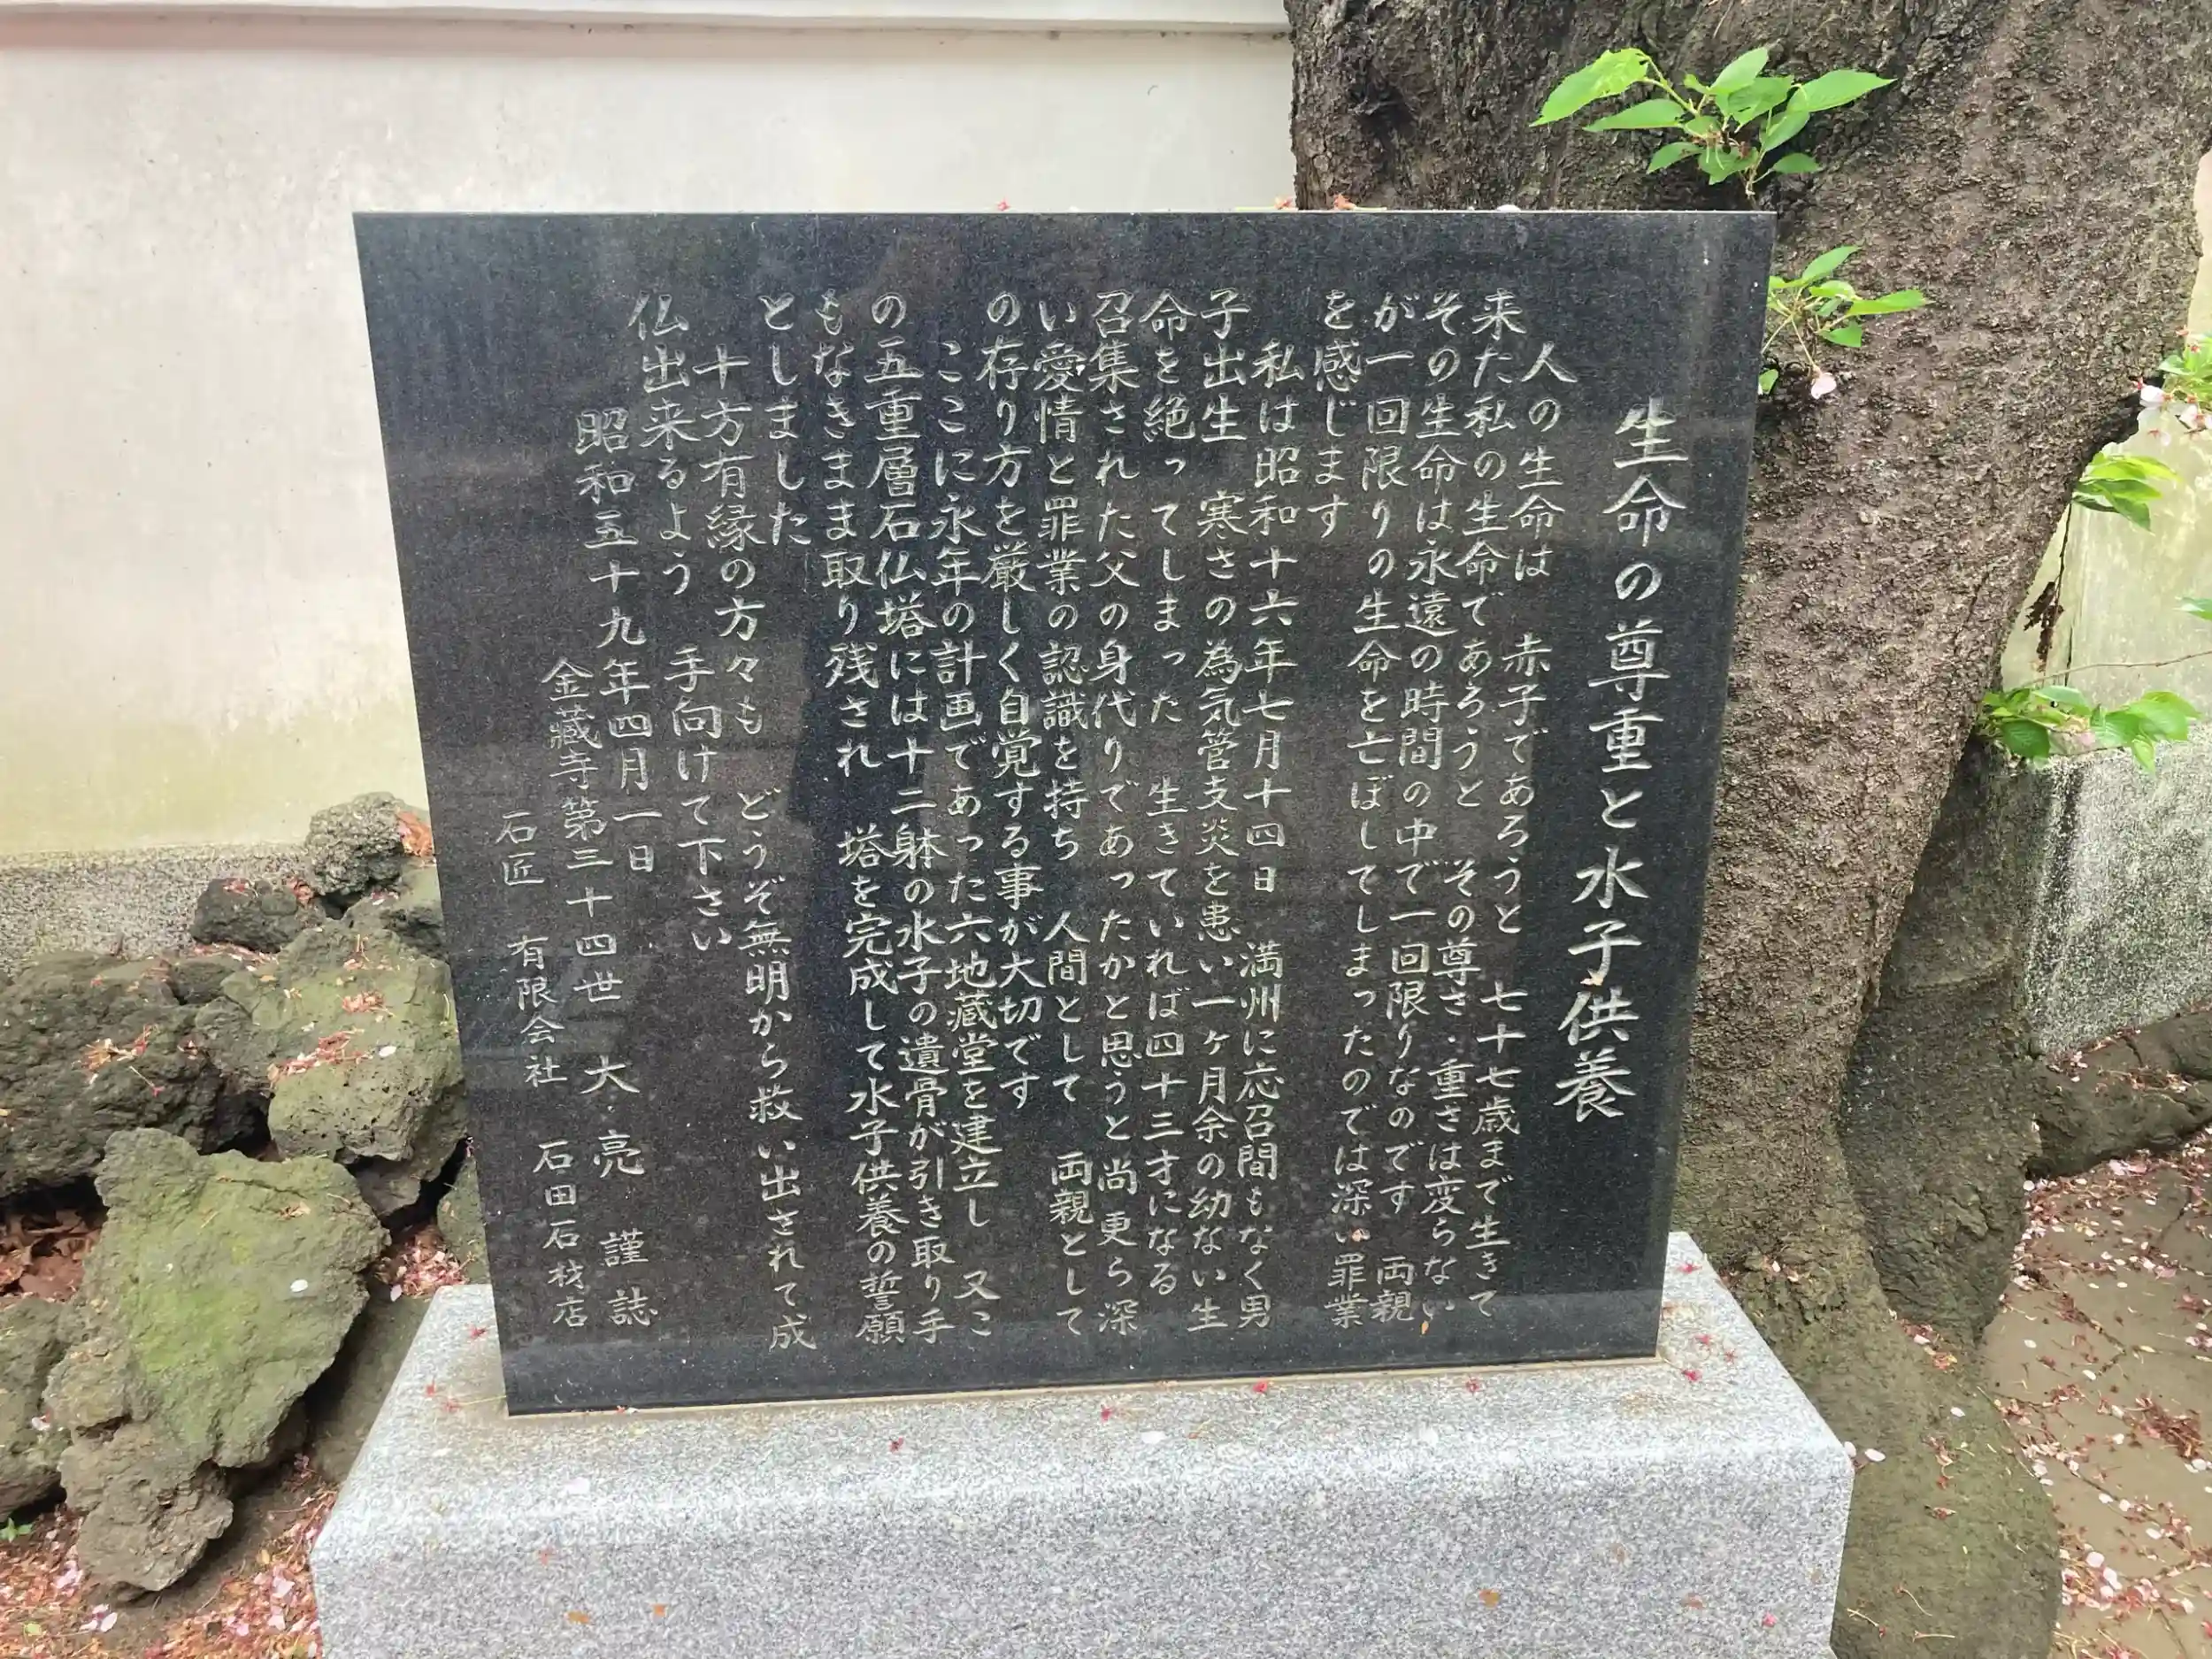 生命の尊重と水子供養
人の生命は 赤子であろうと 七十七歳まで生きて
来た私の生命であろうと その尊さ・重さは変らない
その生命は永遠の時間の中で一回限りなのです 両親
が一回限りの生命を亡ぼしてしまったのでは深い罪業
を感じます
私は昭和十六年七月十四日 満州に応召間もなく男
子出生 寒さの為気管支炎を患い一ヶ月余の幼ない生
命を絶ってしまった 生きていれば四十三才になる
召集された父の身代りであったかと思うと尚更ら深
い愛情と罪業の認識を持ち 人間として 両親として
の存り方を厳しく自覚する事が大切です
ここに永年の計画であった六地蔵堂を建立し 又こ
の五重層石仏塔には十二躰の水子の遺骨が引き取り手
もなきまま取り残され 塔を完成して水子供養の誓願
としました
十方有縁の方々も どうぞ無明から救い出されて成
仏出来るよう 手向けて下さい
昭和五十九年四月一日
金藏寺第三十四世 大亮 謹誌
石匠 有限会社 石田石材店